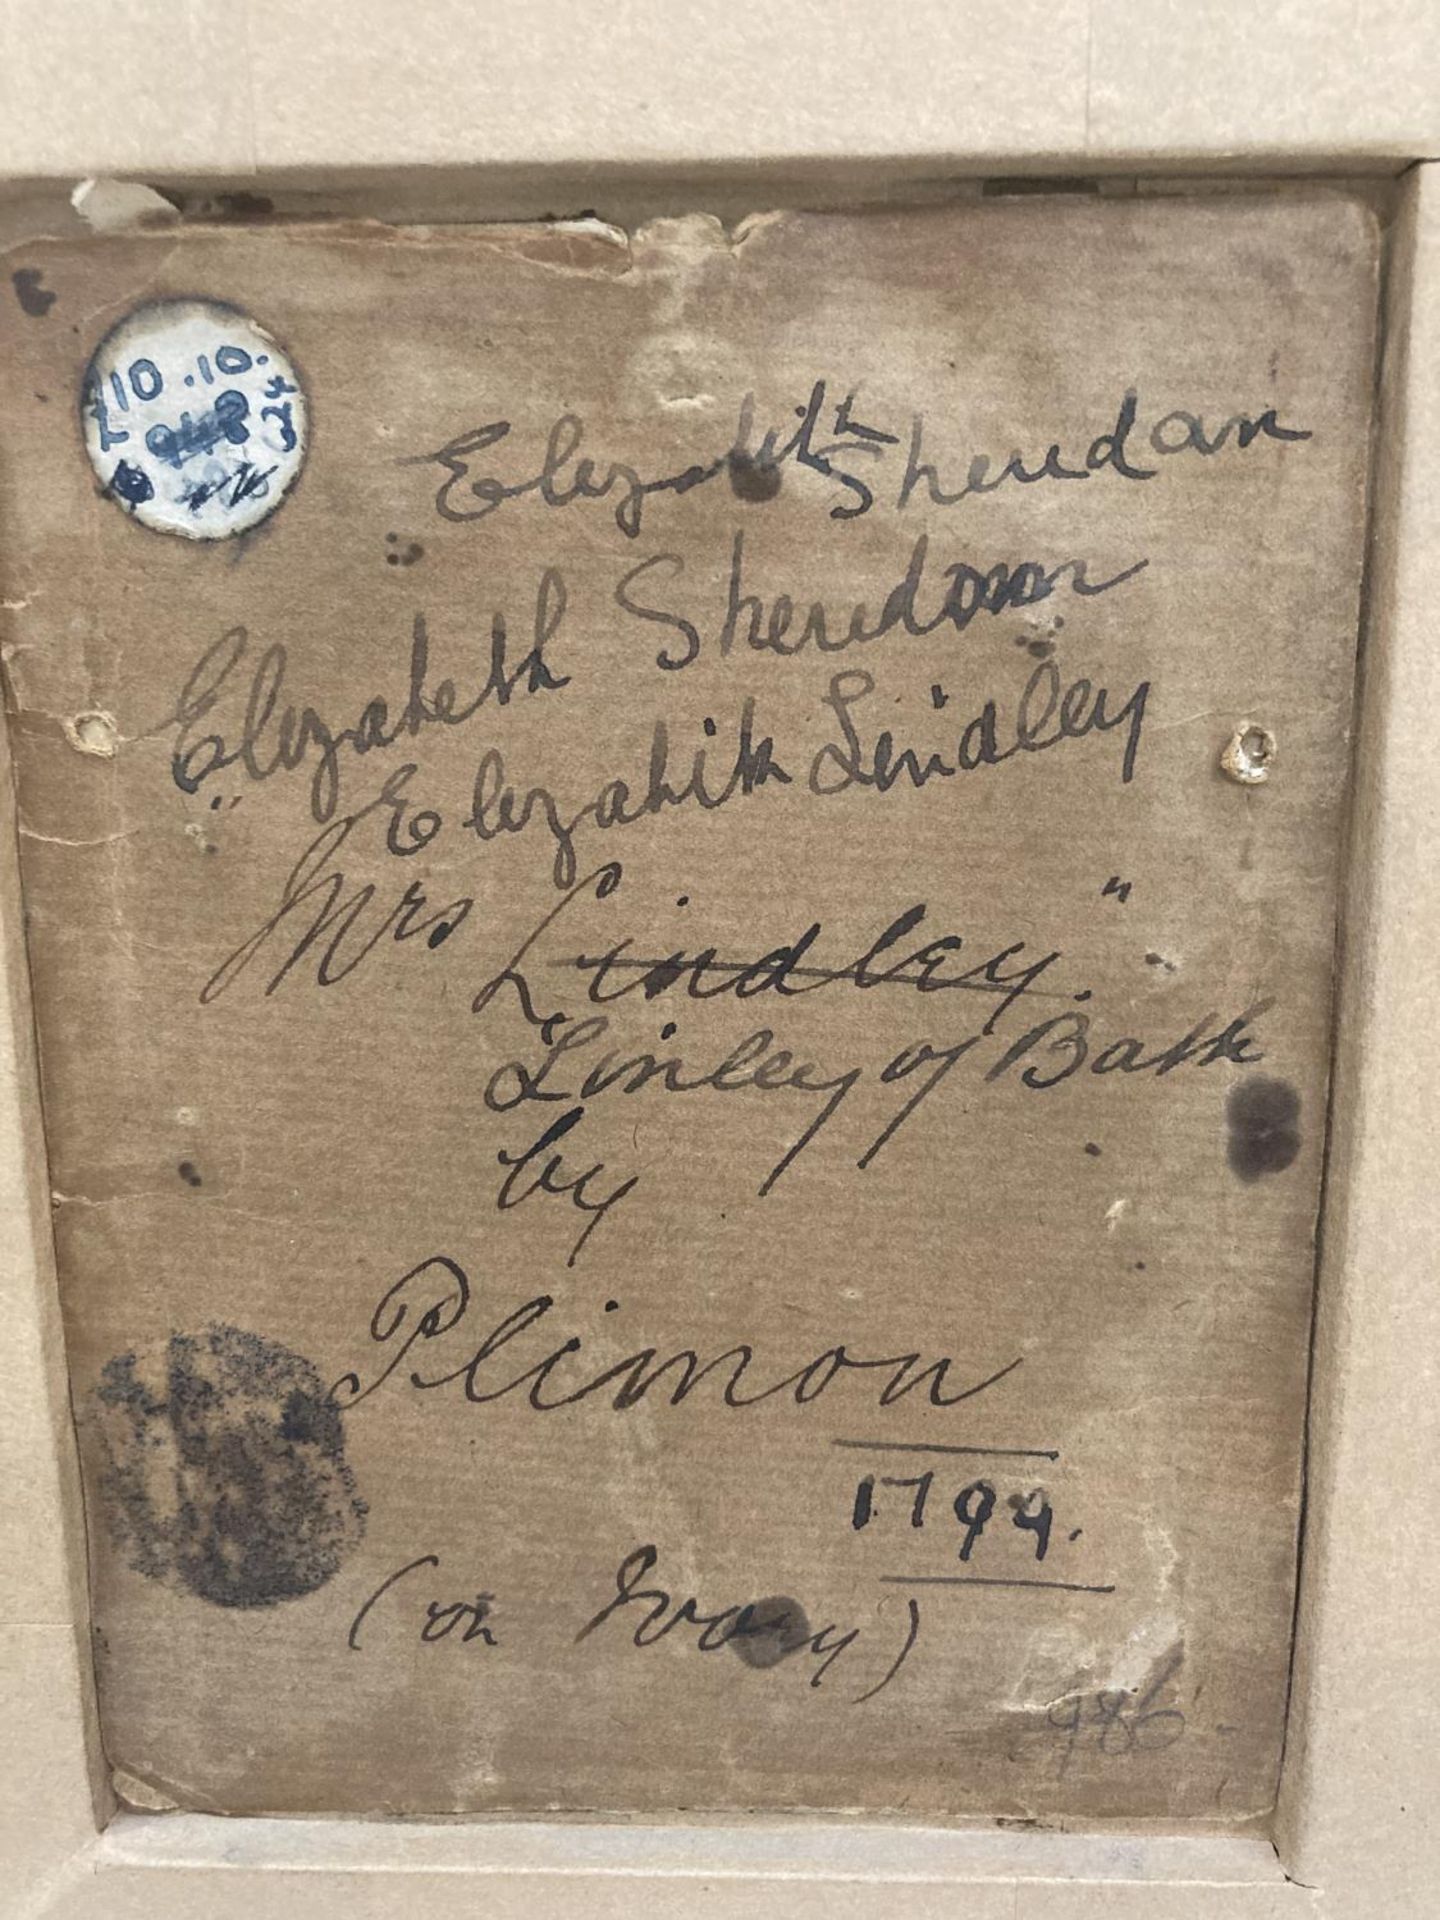 10.10.
24
Elizabith Sheridan
Elizabeth Sheridan
Elizabith Lindley
"Mrs Lindley."
"Linley of Bath
by
Plimon
1794.
(on Ivory)
986.